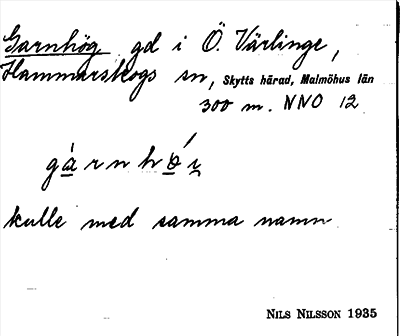 Garnhög gd i Ö. Värlinge,
Hammarskogs sn, Skytts härad, Malmöhus län
300 m. NNO 12
gàrnhǿi
kulle med samma namn
NILS NILSSON 1935